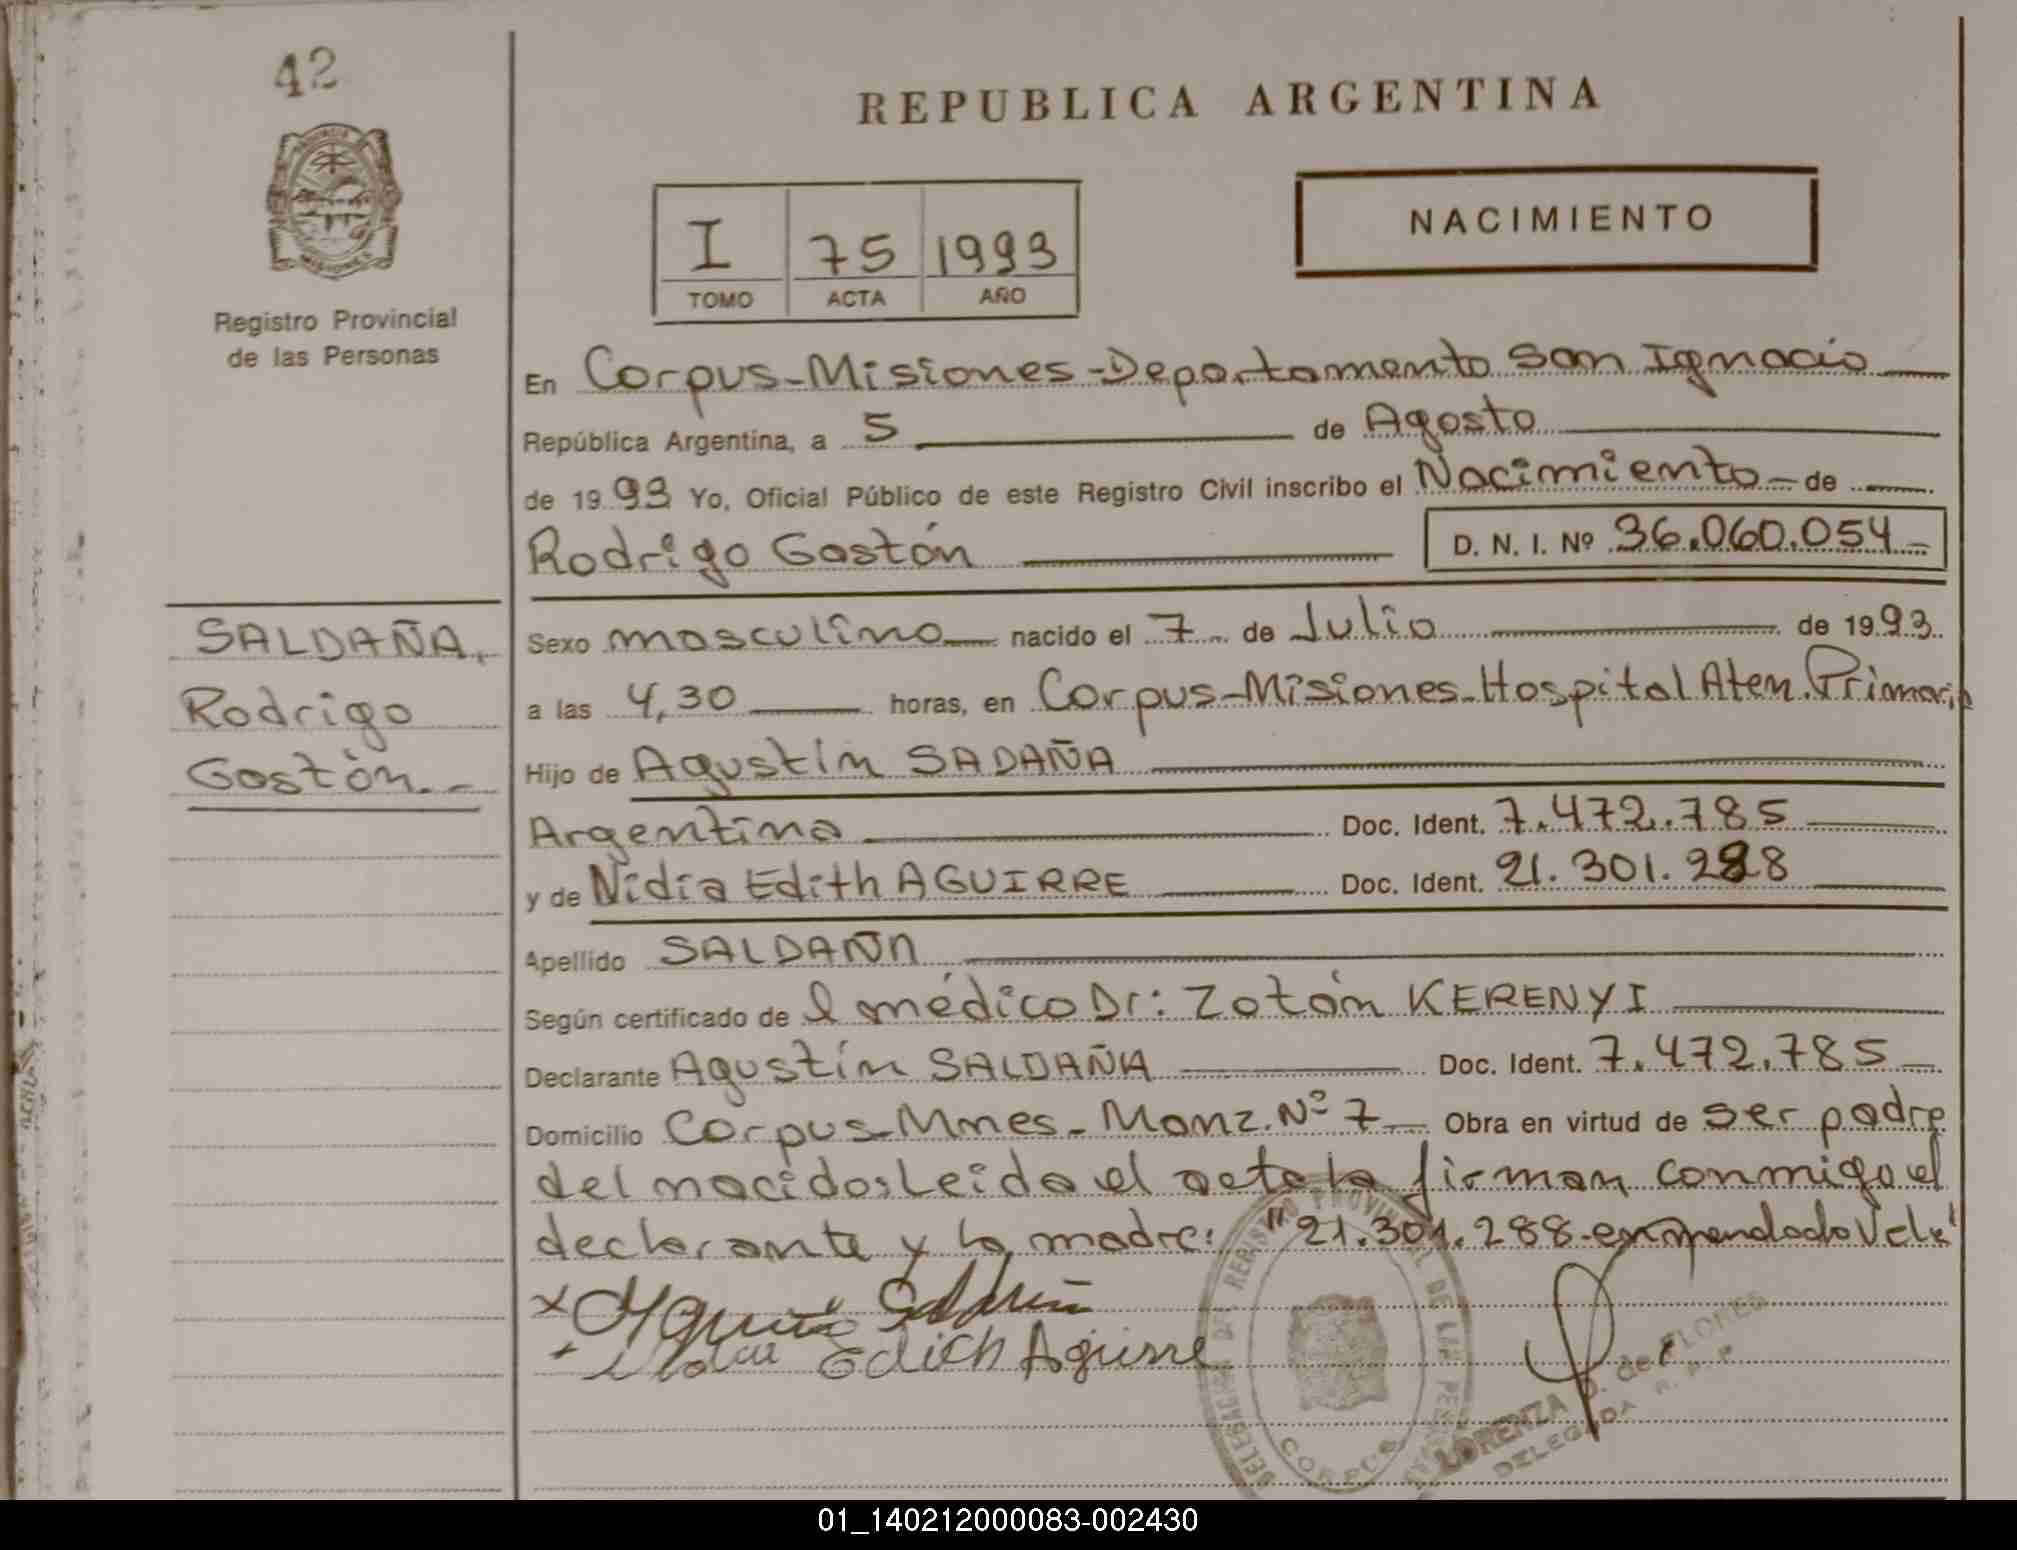 42
REPUBLICA ARGENTINA
NACIMIENTO
I 75 1993
TOMO ACTA AÑO
Registro Provincial
de las Personas
En Corpus-Misiones-Departamento San Ignacio
República Argentina, a 5 de Agosto
de 1993 Yo, Oficial Público de este Registro Civil inscribo el Nacimiento - de
Rodrigo Gastón D. N. I. Nº 36.060.054-
SALDAÑA,
Rodrigo
Gastón.-
Sexo masculino nacido el 7 de Julio de 1993.
a las 4,30 horas, en Corpus-Misiones-Hospital Aten. Primaria
Hijo de Agustín SADAÑA
Argentino Doc. Ident. 7.472.785
y de Nidia Edith AGUIRRE Doc. Ident. 21.301.288
Apellido SALDAÑA
Según certificado de l médico Dr: Zotán KERENYI
Declarante Agustín SALDAÑA Doc. Ident. 7.472.785
Domicilio Corpus-Mnes-Manz. Nº 7 Obra en virtud de ser padre
del nacido; Leida el acta la firman conmigo el
declarante y la madre: "21.301.288-enmendado Vele"
x Agustin Saldaña
Edith Aguirre
DELEGACION DEL REGISTRO PROVINCIAL DE LAS
CORPUS
LORENZA de FLORES
DELEGADA R. P. P.
PROVINCIA
MISIONES
01_140212000083-002430